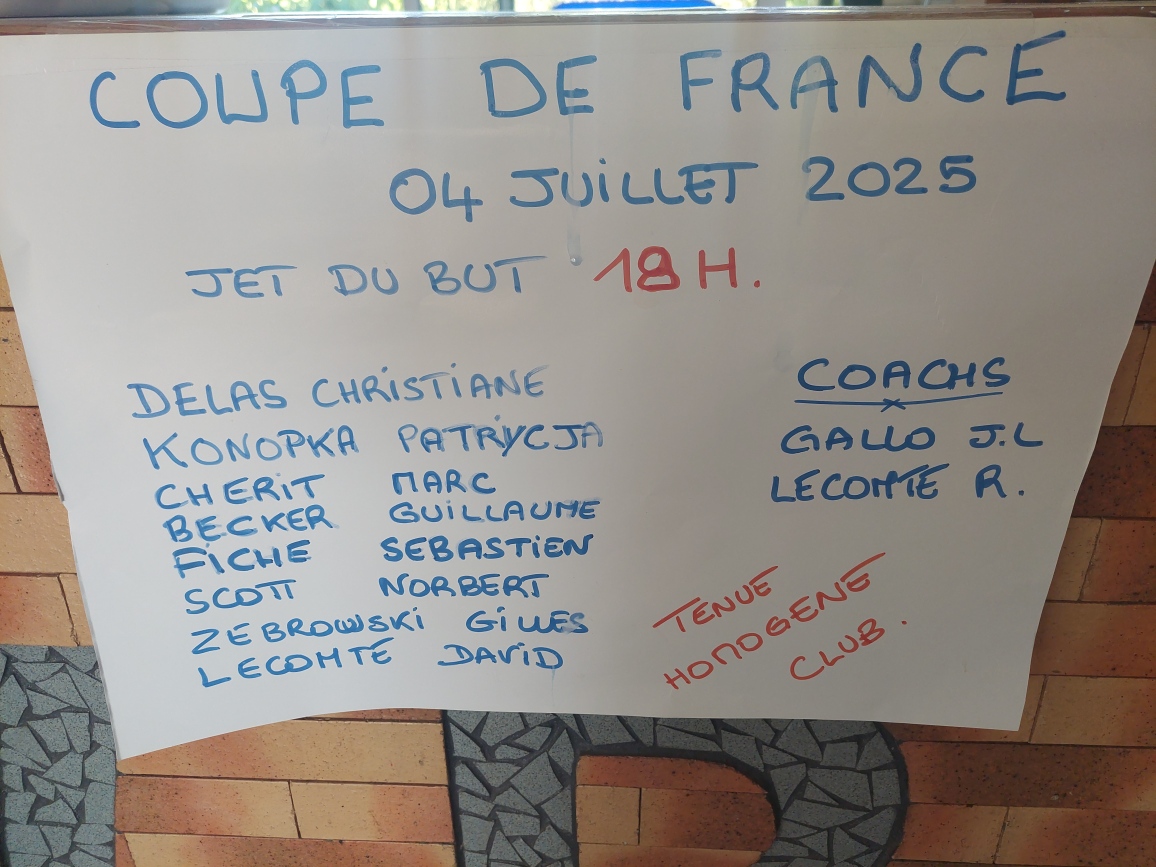 COUPE DE FRANCE
04 JUILLET 2025
JET DU BUT 18H.
DELAS CHRISTIANE
KONOPKA PATRYCJA
CHERIT MARC
BECKER GUILLAUME
FICHE SEBASTIEN
SCOTT NORBERT
ZEBROWSKI GILLES
LECOMTE DAVID
COACHS
GALLO J.L
LECOMTE R.
TENUE
HOMOGENE
CLUB.